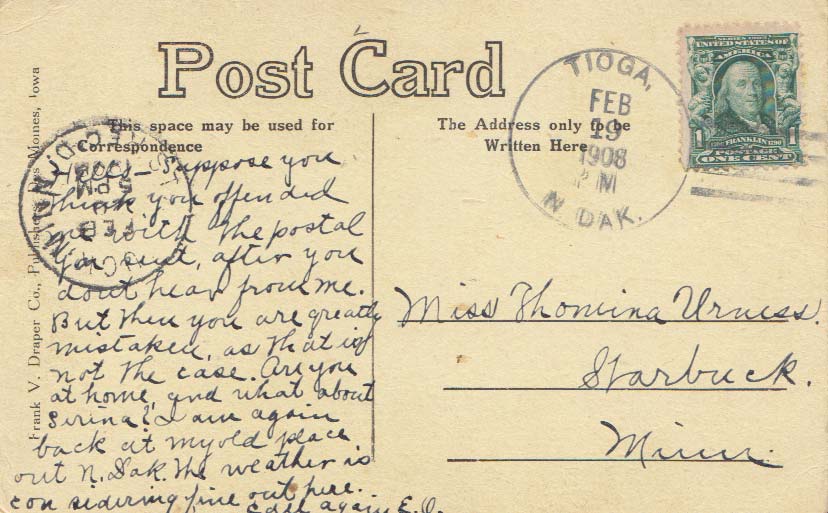 Post Card
This space may be used for
Correspondence
The Address only to be
Written Here
Frank V. Draper Co., Publishers, Des Moines, Iowa
TIOGA,
FEB
19
1908
PM
N. DAK.
SERIES 1902
UNITED STATES OF
AMERICA
1
FRANKLIN
1
POSTAGE
ONE CENT
REC'D.
5 PM
FEB
MINN.
Hello – Suppose you
think you offended
me with the postal
you sent, after you
dont hear from me.
But then you are greatly
mistaken, as that is
not the case. Are you
at home, and what about
Serina? I am again
back at my old place
out N. Dak. The weather is
considering fine out here.
Call again E. O.
Miss Thomina Urness.
Starbuck.
Minn.